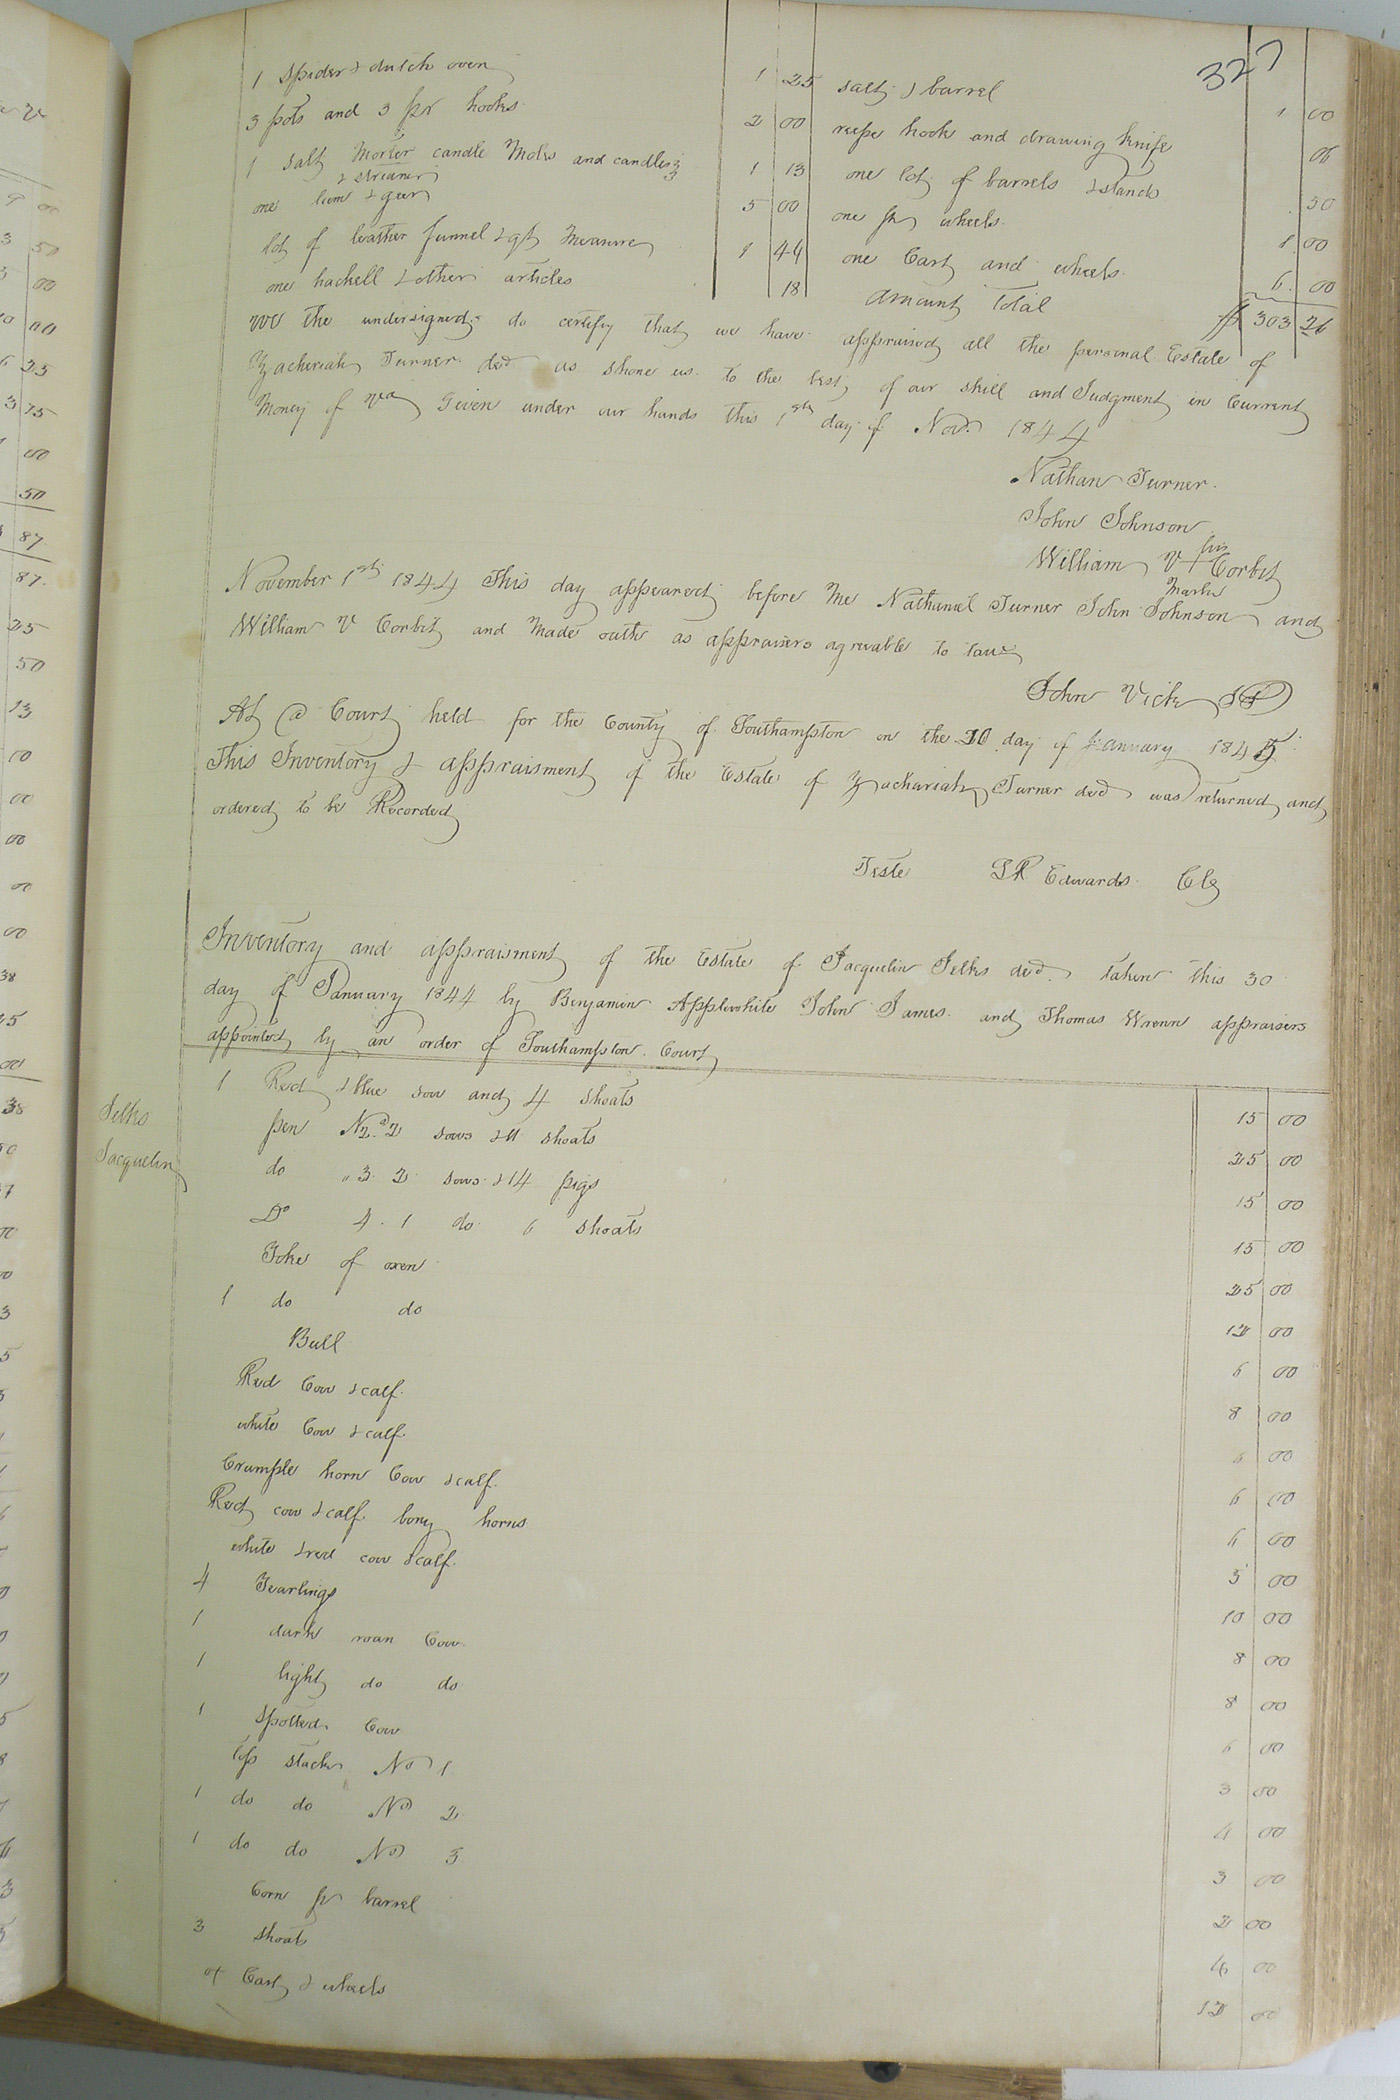 327
1 Spider & dutch oven 1 25
3 pots and 3 pr hooks 2 00
1 salt Morter candle Mols and candles
& streaner 1 13
one loom & geer 5 00
lot of leather funnel & qt Measure 1 44
one hackell & other articles 18
salt & barrel 1 00
reepe hook and drawing knife 06
one lot of barrels & stands 50
one pr wheels 1 00
one Cart and wheels 6 00
Amount Total $ 303 26
We the undersigned do certify that we have appraised all the personal Estate of
Zacheriah Turner decd as shone us to the best of our skill and Judgment in Current
Money of Va Given under our hands this 1st day of Nov. 1844
Nathan Turner
John Johnson
William V + Corbit
his
Mark
November 1st 1844 This day appeared before Me Nathaniel Turner John Johnson and
William V Corbit and Made oath as appraisers agreeable to Law
John Vick JP
At a Court held for the County of Southampton on the 20 day of January 1845
This Inventory & appraisment of the Estate of Zachariah Turner decd was returned and
ordered to be Recorded
Teste LR Edwards Clk
Inventory and appraisment of the Estate of Jacquelin Selks decd taken this 30
day of January 1844 by Benjamin Applewhite John James and Thomas Wrenn appraisers
appointed by an order of Southampton Court
Selks
Jacquelin
1 Red & blue sow and 4 shoats 15 00
pen No 2 2 sows & 11 shoats 25 00
do " 3 2 sows & 14 pigs 15 00
Do 4 1 do 6 shoats 15 00
Yoke of oxen 25 00
1 do do 12 00
Bull 6 00
Red Cow & calf 8 00
white Cow & calf 6 00
Crumple horn Cow & calf 6 00
Red cow & calf horns 6 00
white & red cow & calf 5 00
4 Yearlings 10 00
1 dark roan Cow 8 00
1 light do do 8 00
1 Spotted Cow 6 00
top stack No 1 3 00
1 do do No 2 4 00
1 do do No 3 3 00
Corn pr barrel 2 00
3 shoats 4 00
ox Cart & wheels 12 00